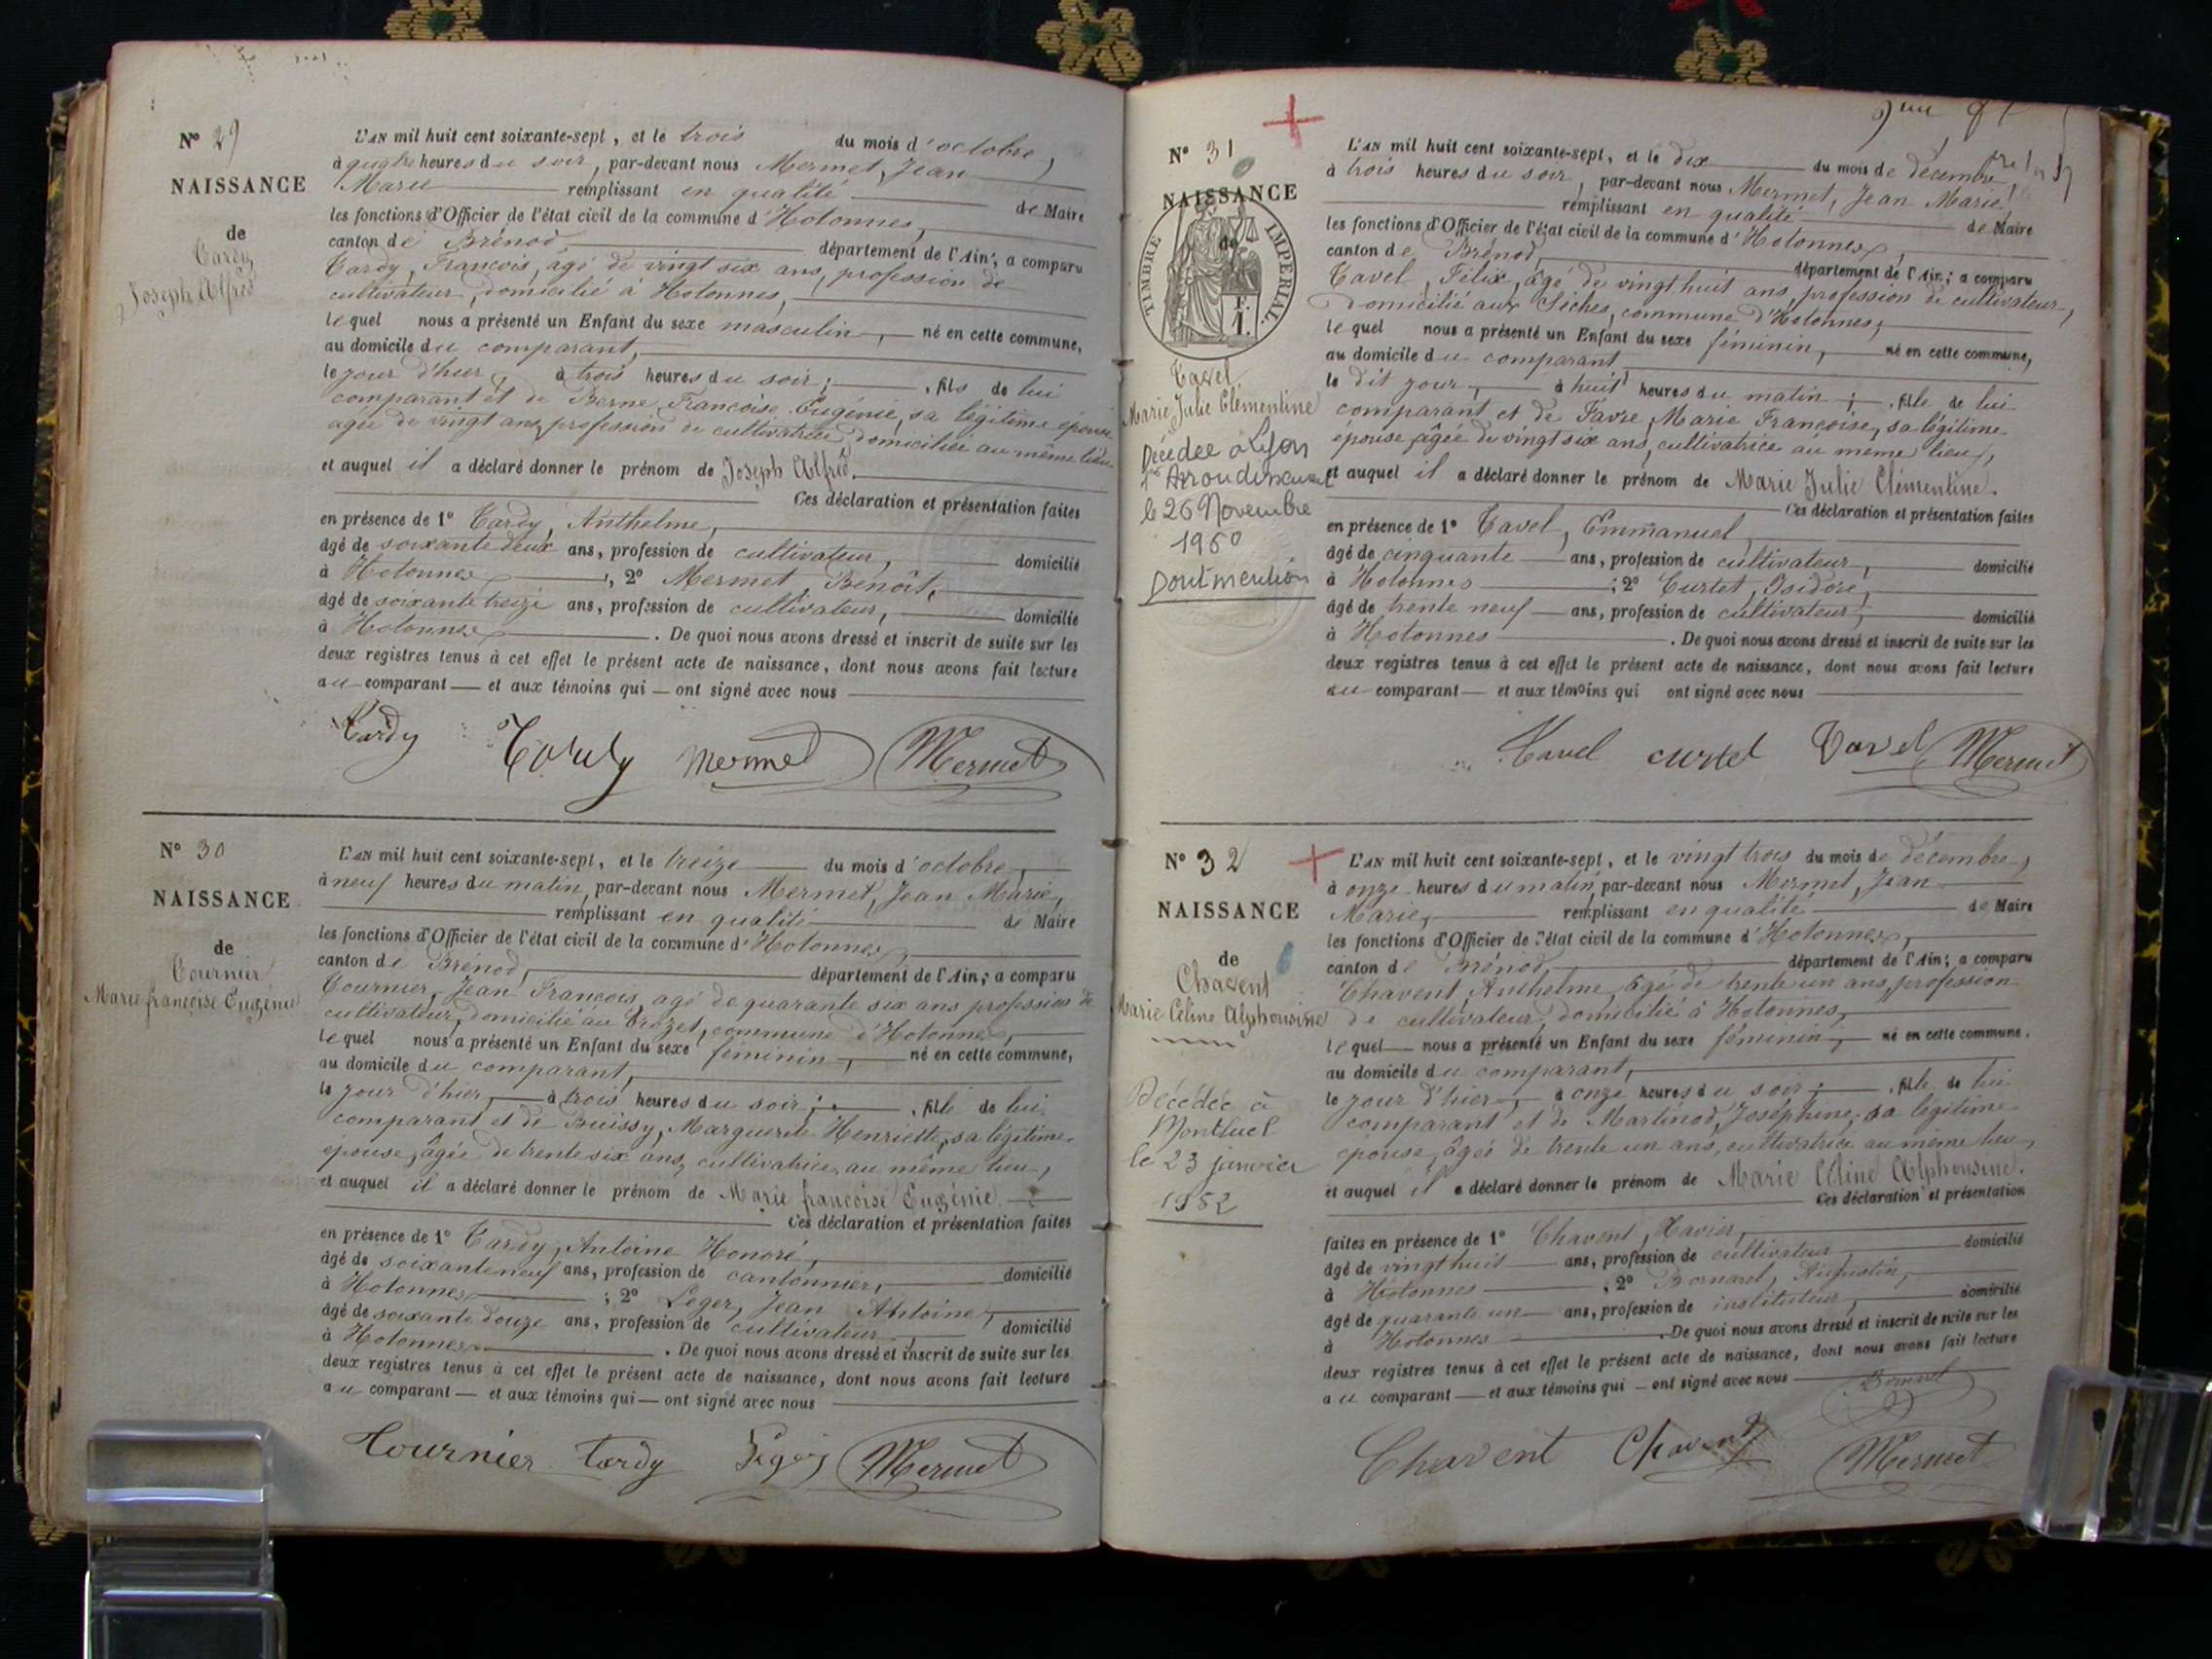 N° 29
NAISSANCE
de
Tardy
Joseph Alfred
L'AN mil huit cent soixante-sept, et le trois du mois d'octobre,
à quatre heures du soir, par-devant nous Mermet, Jean
Marie remplissant en qualité de Maire
les fonctions d'Officier de l'état civil de la commune d'Hotonnes,
canton de Brénod, département de l'Ain; a comparu
Tardy, François, âgé de vingt six ans, profession de
cultivateur, domicilié à Hotonnes,
lequel nous a présenté un Enfant du sexe masculin, né en cette commune,
au domicile du comparant,
le jour d'hier, à trois heures du soir; , fils de lui
comparant et de Berne Françoise Eugénie, sa légitime épouse
âgée de vingt ans, profession de cultivatrice, domiciliée au même lieu
et auquel il a déclaré donner le prénom de Joseph Alfred.
Ces déclaration et présentation faites
en présence de 1° Tardy, Anthelme,
âgé de soixante deux ans, profession de cultivateur, domicilié
à Hotonnes, 2° Mermet, Benoît,
âgé de soixante treize ans, profession de cultivateur, domicilié
à Hotonnes. De quoi nous avons dressé et inscrit de suite sur les
deux registres tenus à cet effet le présent acte de naissance, dont nous avons fait lecture
au comparant — et aux témoins qui — ont signé avec nous
Tardy Tardy Mermet Mermet
N° 30
NAISSANCE
de
Tournier
Marie françoise Eugénie
L'AN mil huit cent soixante-sept, et le treize du mois d'octobre,
à neuf heures du matin, par-devant nous Mermet, Jean Marie,
remplissant en qualité de Maire
les fonctions d'Officier de l'état civil de la commune d'Hotonnes,
canton de Brénod, département de l'Ain; a comparu
Tournier, Jean François, âgé de quarante six ans profession de
cultivateur, domicilié au Crozet, commune d'Hotonnes,
lequel nous a présenté un Enfant du sexe féminin, né en cette commune,
au domicile du comparant,
le jour d'hier, à trois heures du soir; , fille de lui
comparant et de Buissy, Marguerite Henriette, sa légitime
épouse, âgée de trente six ans, cultivatrice au même lieu,
et auquel il a déclaré donner le prénom de Marie françoise Eugénie.
Ces déclaration et présentation faites
en présence de 1° Tardy, Antoine Honoré,
âgé de soixante neuf ans, profession de cantonnier, domicilié
à Hotonnes; 2° Leger, Jean Antoine,
âgé de soixante douze ans, profession de cultivateur, domicilié
à Hotonnes. De quoi nous avons dressé et inscrit de suite sur les
deux registres tenus à cet effet le présent acte de naissance, dont nous avons fait lecture
au comparant — et aux témoins qui — ont signé avec nous
Tournier tardy Mermet
N° 31
NAISSANCE
de
TIMBRE IMPÉRIAL.
F.
1.
Tavel
Marie Julie Clémentine
Décédée à Lyon
1er Arrondissement
le 26 Novembre
1950
Dont mention
L'AN mil huit cent soixante-sept, et le dix du mois de décembre,
à trois heures du soir, par-devant nous Mermet, Jean Marie,
remplissant en qualité de Maire
les fonctions d'Officier de l'état civil de la commune d'Hotonnes,
canton de Brénod, département de l'Ain; a comparu
Tavel, Félix, âgé de vingt huit ans, profession de cultivateur,
domicilié aux Sèches, commune d'Hotonnes,
lequel nous a présenté un Enfant du sexe féminin, né en cette commune,
au domicile du comparant
le dit jour, à huit heures du matin; , fille de lui
comparant et de Favre, Marie Françoise, sa légitime
épouse, âgée de vingt six ans, cultivatrice au même lieu,
et auquel il a déclaré donner le prénom de Marie Julie Clémentine.
Ces déclaration et présentation faites
en présence de 1° Tavel, Emmanuel
âgé de cinquante ans, profession de cultivateur, domicilié
à Hotonnes; 2° Curtet, Isidore,
âgé de trente neuf ans, profession de cultivateur, domicilié
à Hotonnes. De quoi nous avons dressé et inscrit de suite sur les
deux registres tenus à cet effet le présent acte de naissance, dont nous avons fait lecture
au comparant — et aux témoins qui ont signé avec nous
Tavel curtet Tavel Mermet
N° 32
NAISSANCE
de
Chavent
Marie Céline Alphonsine
Décédée à
Montluel
le 23 janvier
1952
L'AN mil huit cent soixante-sept, et le vingt trois du mois de décembre,
à onze heures du matin, par-devant nous Mermet, Jean
Marie, remplissant en qualité de Maire
les fonctions d'Officier de l'état civil de la commune d'Hotonnes,
canton de Brénod, département de l'Ain; a comparu
Chavent, Anthelme, âgé de trente un ans, profession
de cultivateur, domicilié à Hotonnes,
lequel nous a présenté un Enfant du sexe féminin, né en cette commune.
au domicile du comparant,
le jour d'hier, à onze heures du soir; , fille de lui
comparant et de Martinod, Joséphine, sa légitime
épouse, âgée de trente un ans, cultivatrice au même lieu,
et auquel il a déclaré donner le prénom de Marie Céline Alphonsine.
Ces déclaration et présentation
faites en présence de 1° Chavent, Xavier,
âgé de vingt huit ans, profession de cultivateur, domicilié
à Hotonnes, 2° Bornarel, Augustin,
âgé de quarante un ans, profession de instituteur, domicilié
à Hotonnes. De quoi nous avons dressé et inscrit de suite sur les
deux registres tenus à cet effet le présent acte de naissance, dont nous avons fait lecture
au comparant — et aux témoins qui — ont signé avec nous
Chavent Chavent Mermet